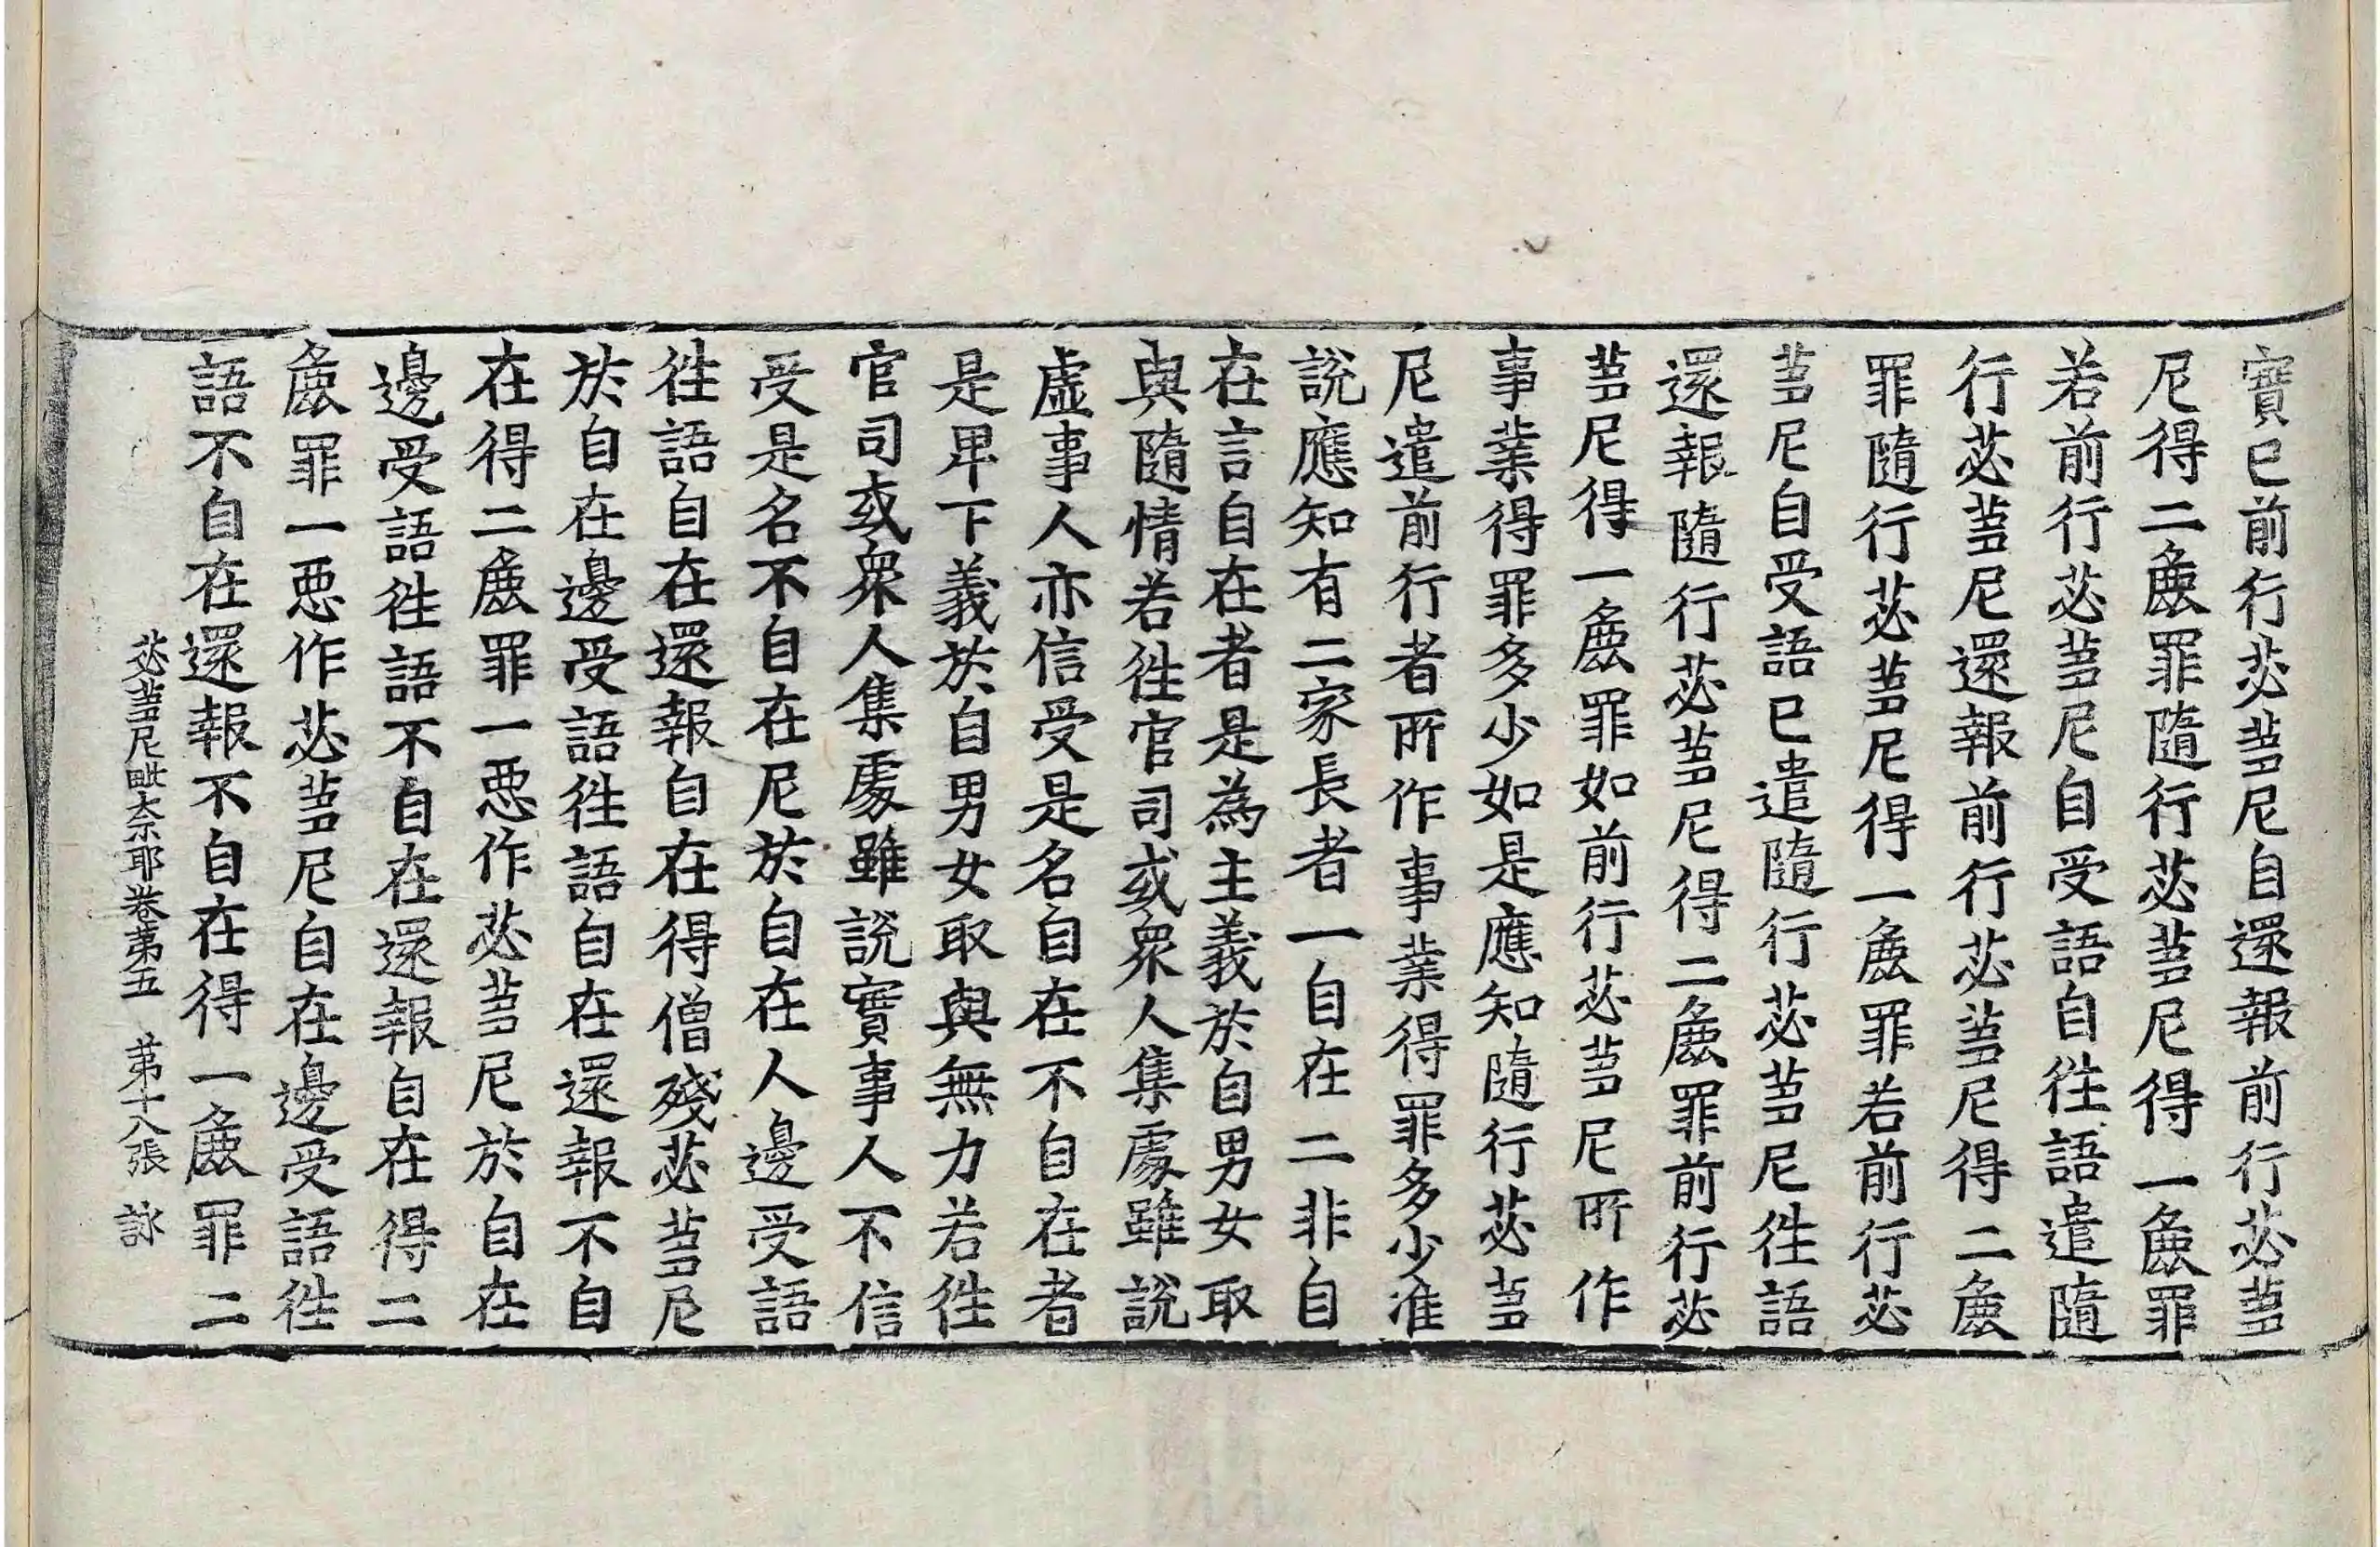 寶已前行苾蒭尼自還報前行苾蒭
尼得二麁罪隨行苾蒭尼得一麁罪
若前行苾蒭尼自受語自往語遣隨
行苾蒭尼還報前行苾蒭尼得二麁
罪隨行苾蒭尼得一麁罪若前行苾
蒭尼自受語已遣隨行苾蒭尼往語
還報隨行苾蒭尼得二麁罪前行苾
蒭尼得一麁罪如前行苾蒭尼所作
事業得罪多少如是應知隨行苾蒭
尼遣前行者所作事業得罪多少准
說應知有二家長者一自在二非自
在言自在者是為主義於自男女取
與隨情若往官司或衆人集處雖說
虛事人亦信受是名自在不自在者
是卑下義於自男女取與無力若往
官司或衆人集處雖說實事人不信
受是名不自在尼於自在人邊受語
往語自在還報自在得僧殘苾蒭尼
於自在邊受語往語自在還報不自
在得二麁罪一惡作苾蒭尼於自在
邊受語往語不自在還報自在得二
麁罪一惡作苾蒭尼自在邊受語往
語不自在還報不自在得一麁罪二
苾蒭尼毗奈耶卷第五 第十八張 詠